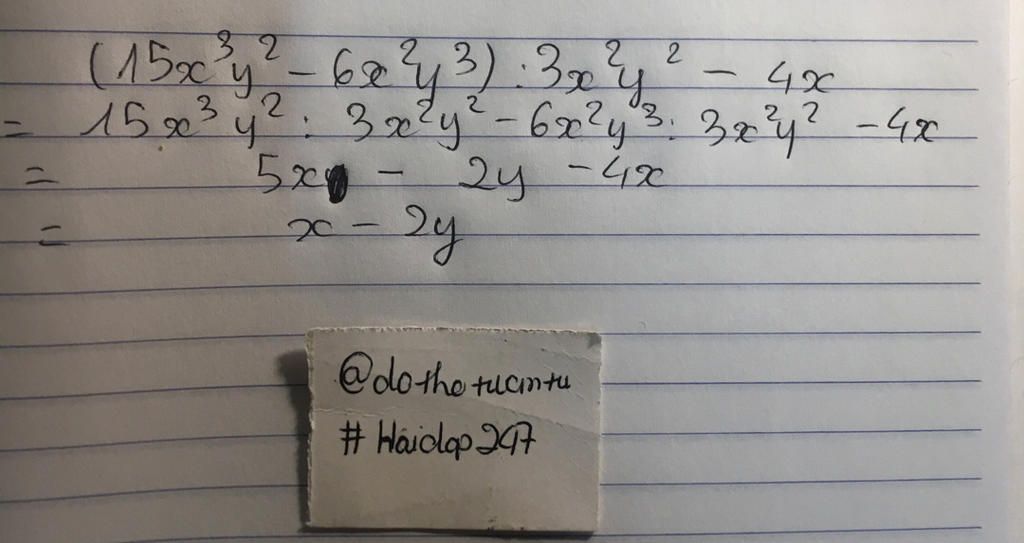 (15x³y² - 6x²y³) : 3x²y² - 4x
= 15x³y² : 3x²y² - 6x²y³ : 3x²y² - 4x
= 5x - 2y - 4x
= x - 2y
@dothetuantu
# Hoidap247